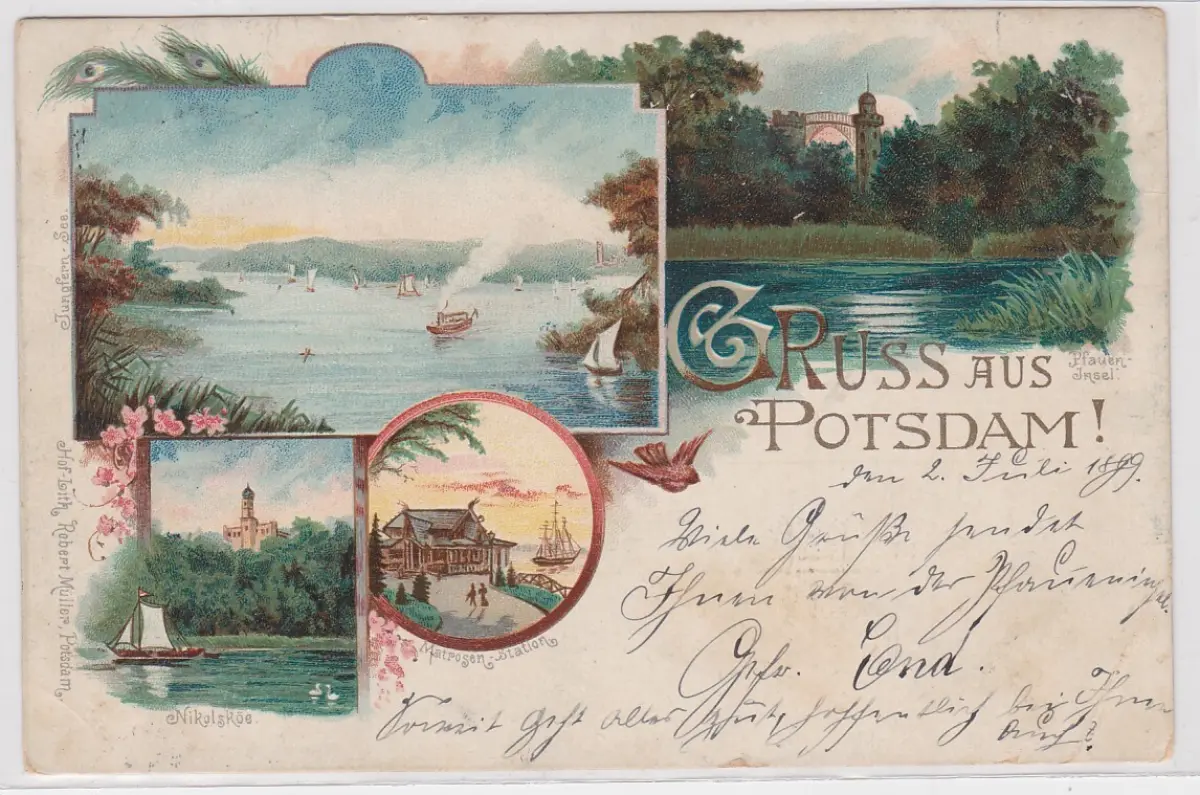 Jungfern-See.
Pfauen-
Insel.
GRUSS AUS
POTSDAM!
den 2. Juli 1899.
Viele Grüße sendet
Ihnen von der Pfaueninsel.
Matrosen-Station
Nikolsköe.
Hof-Lith. Robert Müller, Potsdam.
Soweit geht alles gut, hoffentlich bei Ihnen
auch?